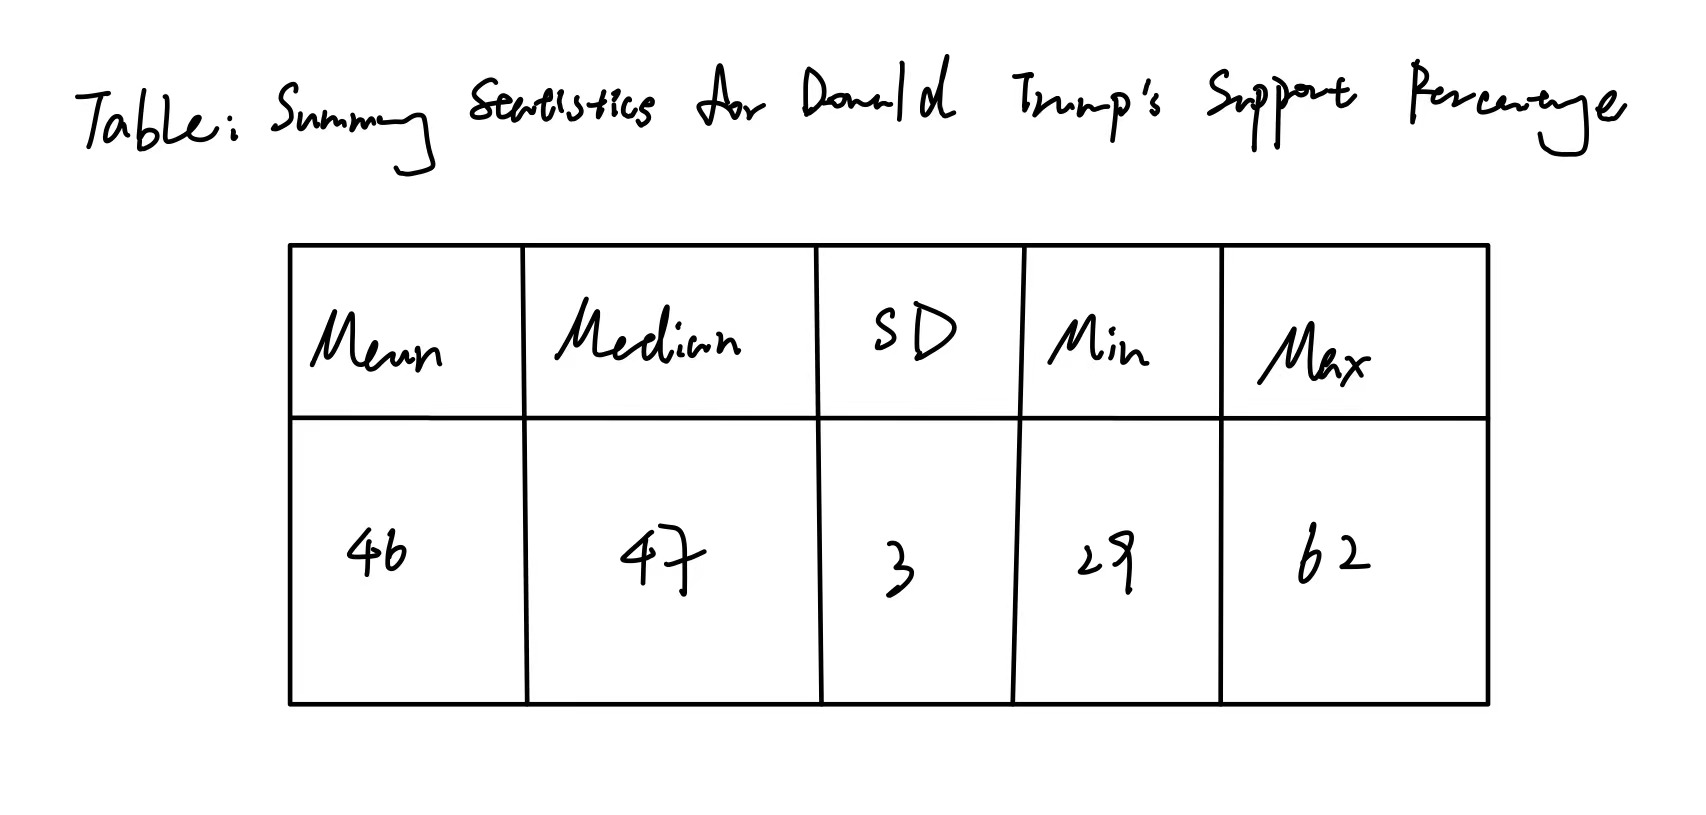 Table: Summary Statistics for Donald Trump's Support Percentage
Mean Median SD Min Max
46 47 3 29 62